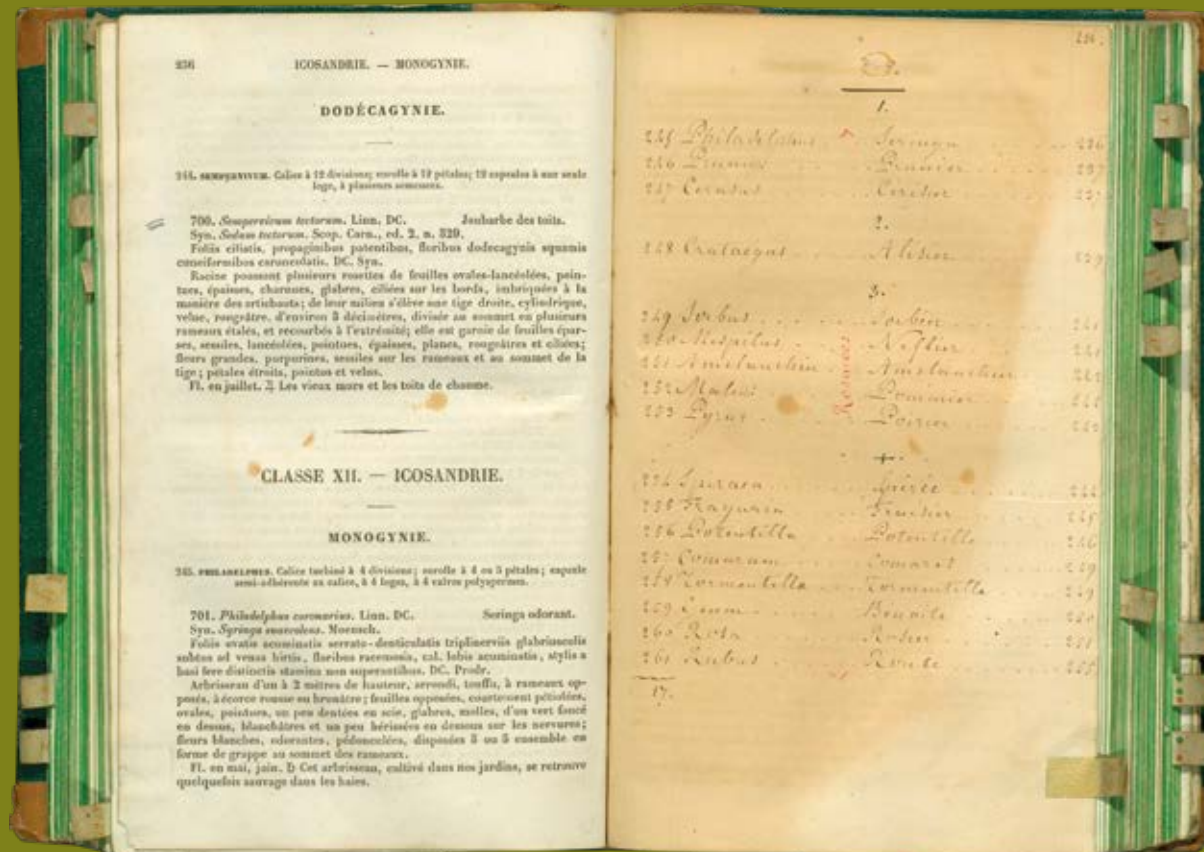 236 ICOSANDRIE. — MONOGYNIE.
DODÉCAGYNIE.
244. SEMPERVIVUM. Calice à 12 divisions; corolle à 12 pétales; 12 capsules à une seule
loge, à plusieurs semences.
700. Sempervivum tectorum. Linn. DC. Joubarbe des toits.
Syn. Sedum tectorum. Scop. Carn., ed. 2, n. 529.
Foliis ciliatis, propaginibus patentibus, floribus dodecagynis squamis
cuneiformibus carunculatis. DC. Syn.
Racine poussant plusieurs rosettes de feuilles ovales-lancéolées, poin-
tues, épaisses, charnues, glabres, ciliées sur les bords, imbriquées à la
manière des artichauts; de leur milieu s'élève une tige droite, cylindrique,
velue, rougeâtre, d'environ 3 décimètres, divisée au sommet en plusieurs
rameaux étalés, et recourbés à l'extrémité; elle est garnie de feuilles épar-
ses, sessiles, lancéolées, pointues, épaisses, planes, rougeâtres et ciliées;
fleurs grandes, purpurines, sessiles sur les rameaux et au sommet de la
tige; pétales étroits, pointus et velus.
Fl. en juillet. ♃ Les vieux murs et les toits de chaume.
CLASSE XII. — ICOSANDRIE.
MONOGYNIE.
245. PHILADELPHUS. Calice turbiné à 4 divisions; corolle à 4 ou 5 pétales; capsule
semi-adhérente au calice, à 4 loges, à 4 valves polyspermes.
701. Philadelphus coronarius. Linn. DC. Seringa odorant.
Syn. Syringa suaveolens. Moench.
Foliis ovatis acuminatis serrato-denticulatis triplinerviis glabriusculis
subtus ad venas hirtis, floribus racemosis, cal. lobis acuminatis, stylis a
basi fere distinctis stamina non superantibus. DC. Prodr.
Arbrisseau d'un à 2 mètres de hauteur, arrondi, touffu, à rameaux op-
posés, à écorce rousse ou brunâtre; feuilles opposées, courtement pétiolées,
ovales, pointues, un peu dentées en scie, glabres, molles, d'un vert foncé
en dessus, blanchâtres et un peu hérissées en dessous sur les nervures;
fleurs blanches, odorantes, pédonculées, disposées 3 ou 5 ensemble en
forme de grappe au sommet des rameaux.
Fl. en mai, juin. ♄ Cet arbrisseau, cultivé dans nos jardins, se retrouve
quelquefois sauvage dans les haies.
1.
245 Philadelphus Seringa 236
246 Prunus Prunier 237
247 Cerasus Cerisier 237
2.
248 Crataegus Alisier 239
3.
249 Sorbus Sorbier
250 Mespilus Neflier
251 Amelanchier Amelanchier
252 Malus Pommier
253 Pyrus Poirier
Rosacées
4.
254 Spiraea Spirée
255 Fragaria Fraisier 245
256 Potentilla Potentille 246
257 Comarum Comaret 249
258 Tormentilla Tormentille 249
259 Geum Benoite 250
260 Rosa Rosier
261 Rubus Ronce 255
17.